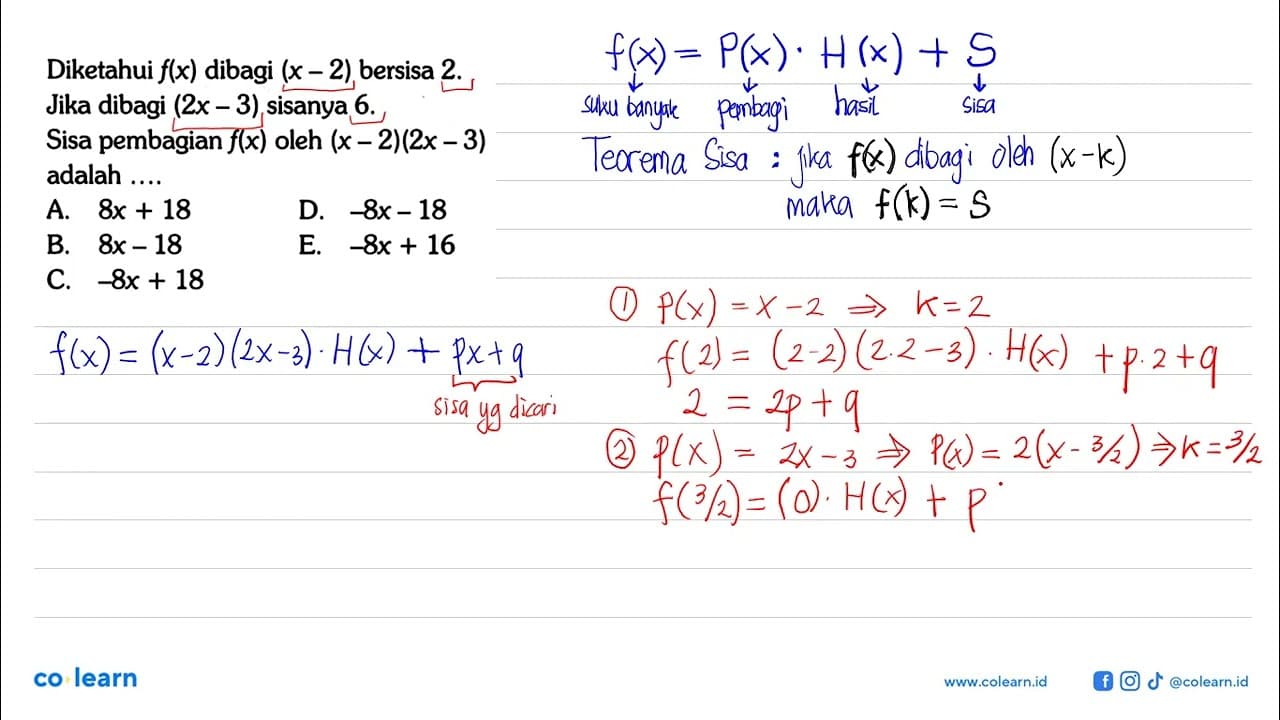 Diketahui f(x) dibagi (x – 2) bersisa 2.
Jika dibagi (2x – 3) sisanya 6.
Sisa pembagian f(x) oleh (x – 2)(2x – 3)
adalah ....
A. 8x + 18 D. –8x – 18
B. 8x – 18 E. –8x + 16
C. –8x + 18
f(x) = (x-2)(2x-3)·H(x) + px+q
sisa yg dicari
f(x) = P(x)· H(x) + S
suku banyak pembagi hasil sisa
Teorema Sisa : jika f(x) dibagi oleh (x-k)
maka f(k) = S
① P(x) = x-2 ⇒ k=2
f(2) = (2-2)(2.2-3)· H(x) + p·2+q
2 = 2p+q
② P(x) = 2x-3 ⇒ P(x) = 2(x-3/2) ⇒ k=3/2
f(3/2) = (0)· H(x) + p·
co·learn
www.colearn.id @colearn.id